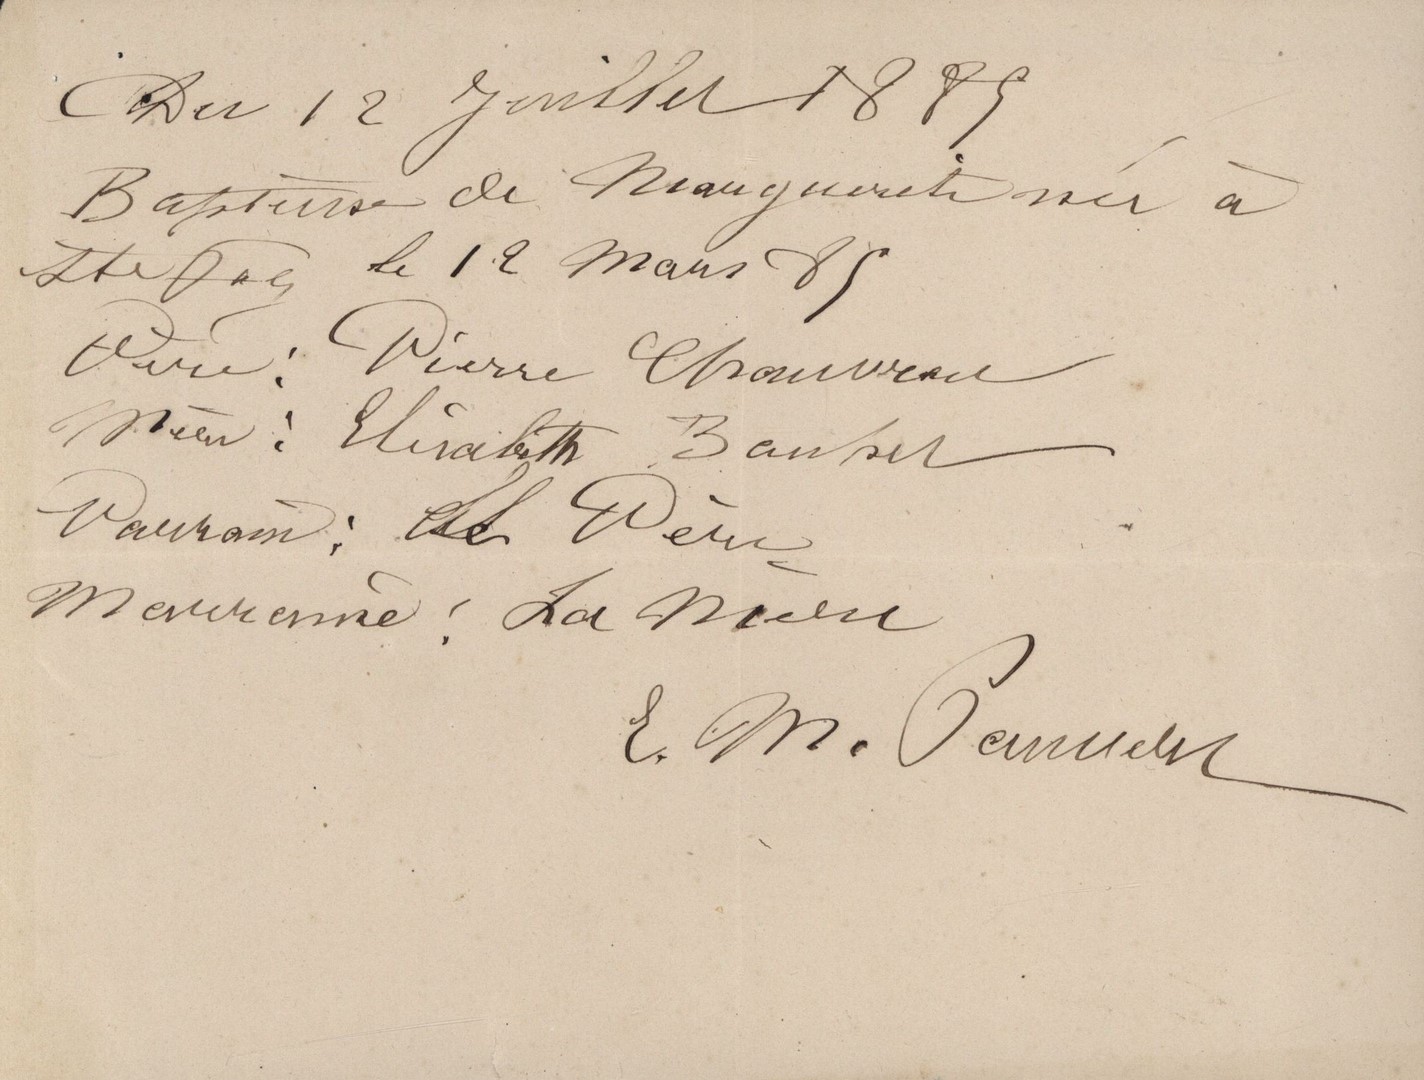 Du 12 Juillet 1885
Baptême de Marguerite née à
Ste Foy le 12 Mars 85
Père : Pierre Chauvreau
Mère : Elisabeth
Parrain : Le Père
Marraine : La Mère
E. M.